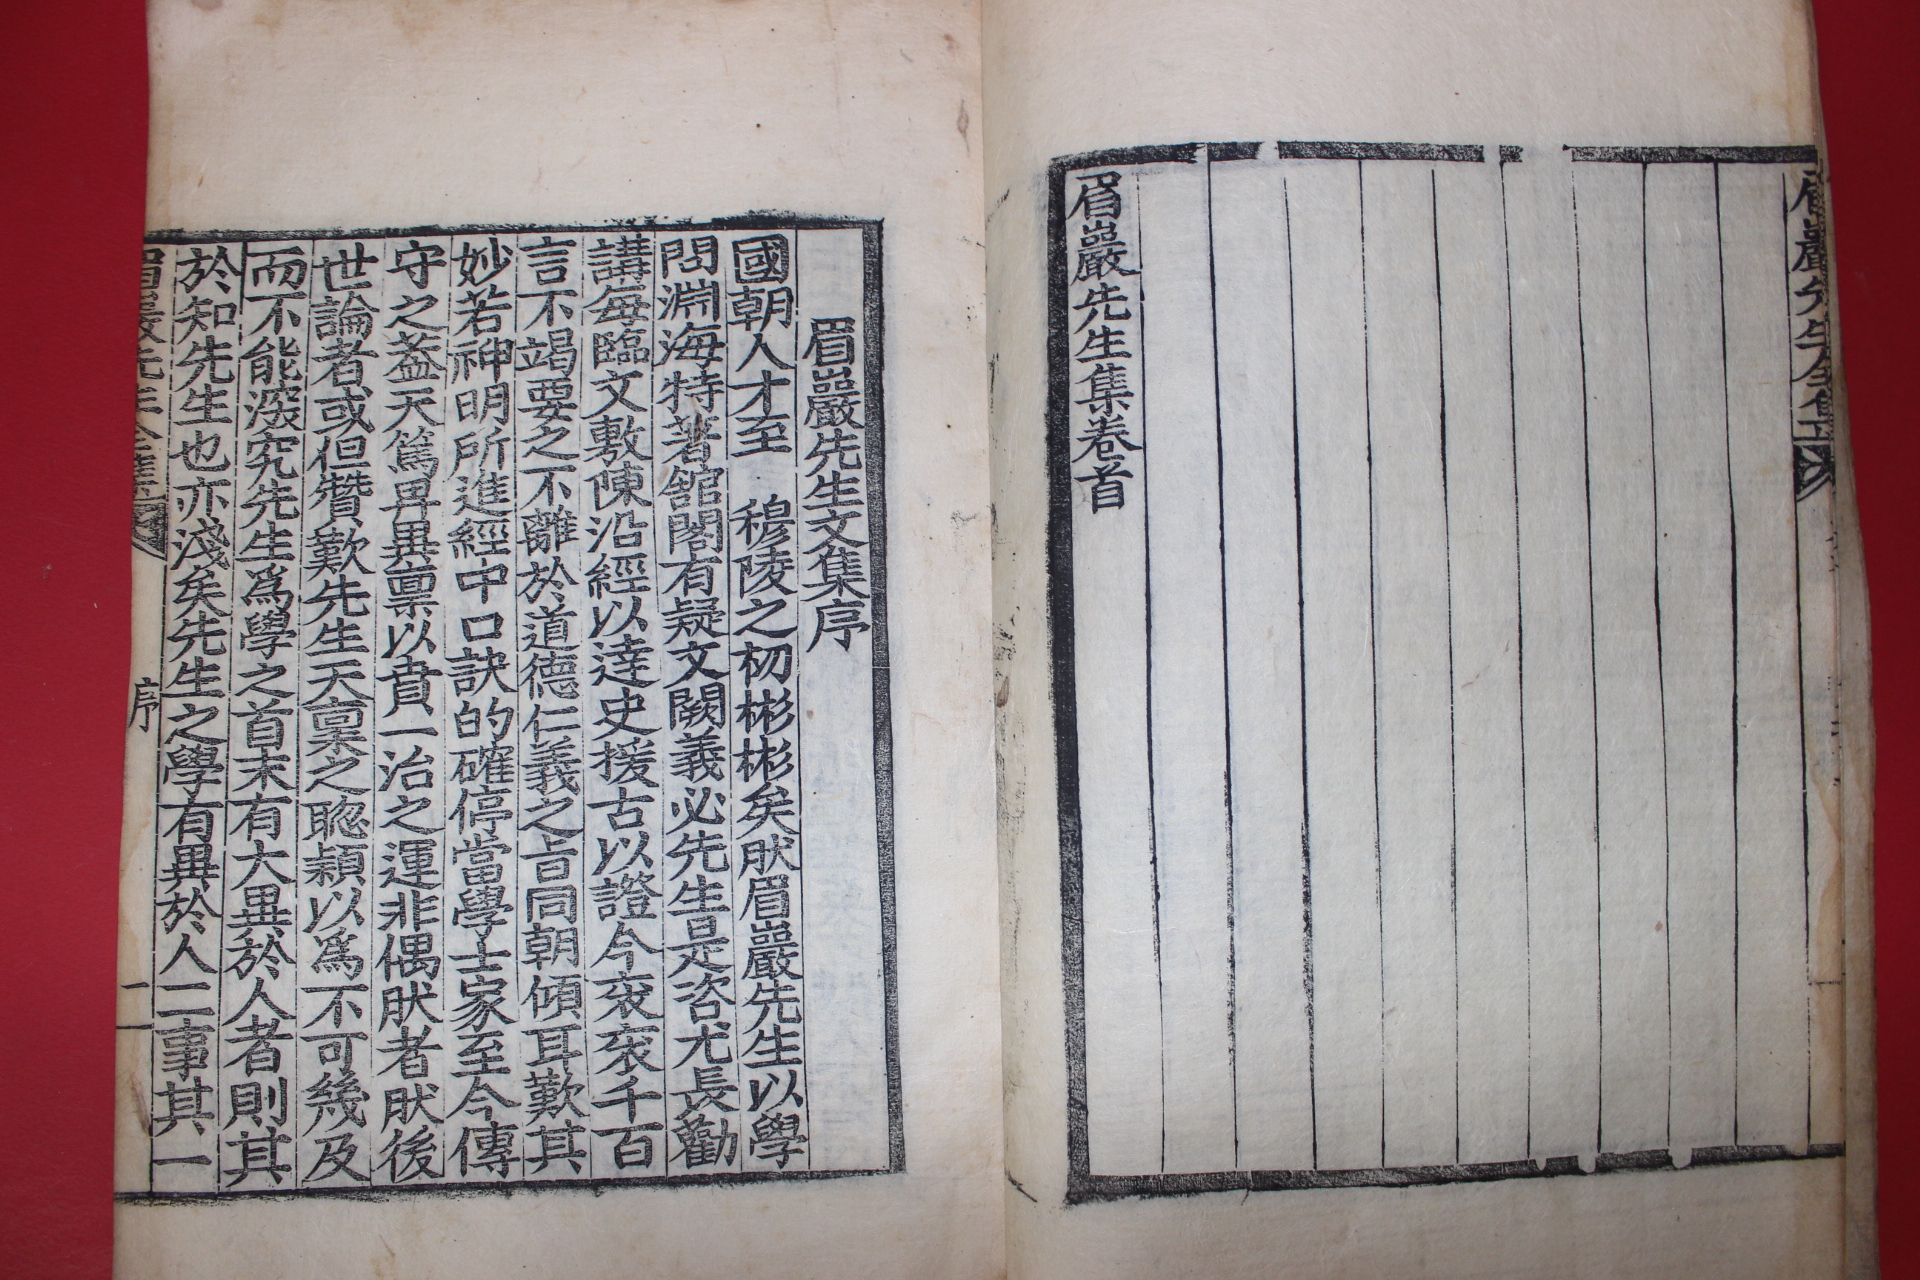 眉巖先生全集
眉巖先生集卷首
眉巖先生文集序
國朝人才至 穆陵之初彬彬矣肰眉巖先生以學
問淵海特著舘閣有疑文闕義必先生是咨尤長勸
講每臨文敷陳沿經以達史援古以證今衮衮千百
言不竭要之不離於道德仁義之旨同朝傾耳歎其
妙若神明所進經中口訣的確停當學士家至今傳
守之葢天篤畀異禀以賁一治之運非偶肰者肰後
世論者或但贊歎先生天禀之聦穎以爲不可幾及
而不能深究先生爲學之首末有大異於人者則其
於知先生也亦淺矣先生之學有異於人二事其一
眉巖先生全集 序